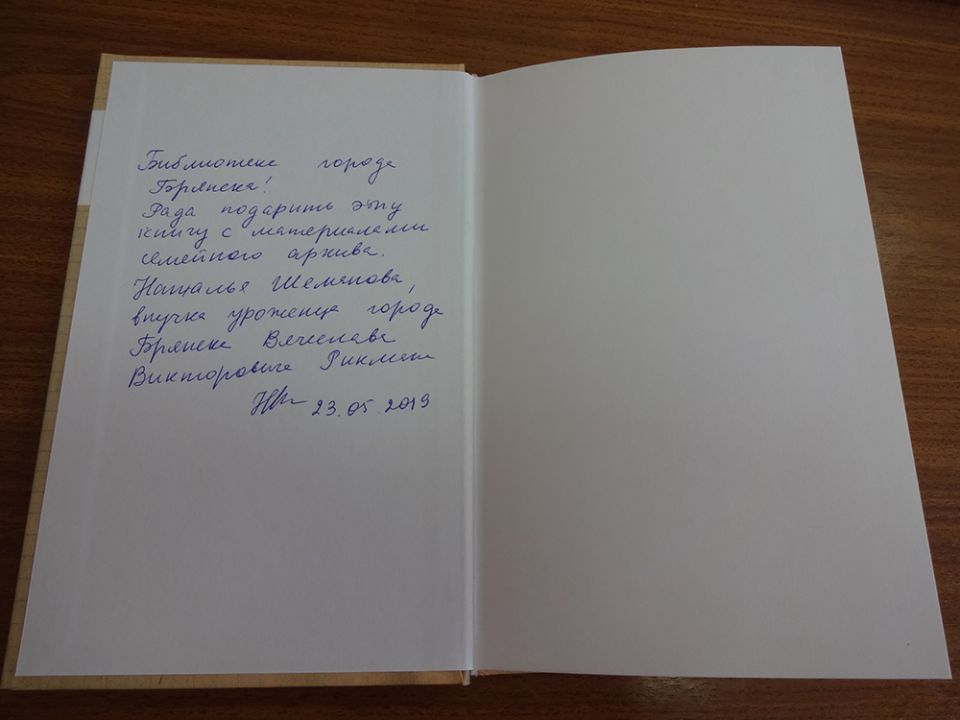 Библиотеке города
Брянска!
Рада подарить эту
книгу с материалами
семейного архива.
Наталья Шемякова,
внучка уроженца города
Брянска Вячеслава
Викторовича Рикмана
23.05.2019